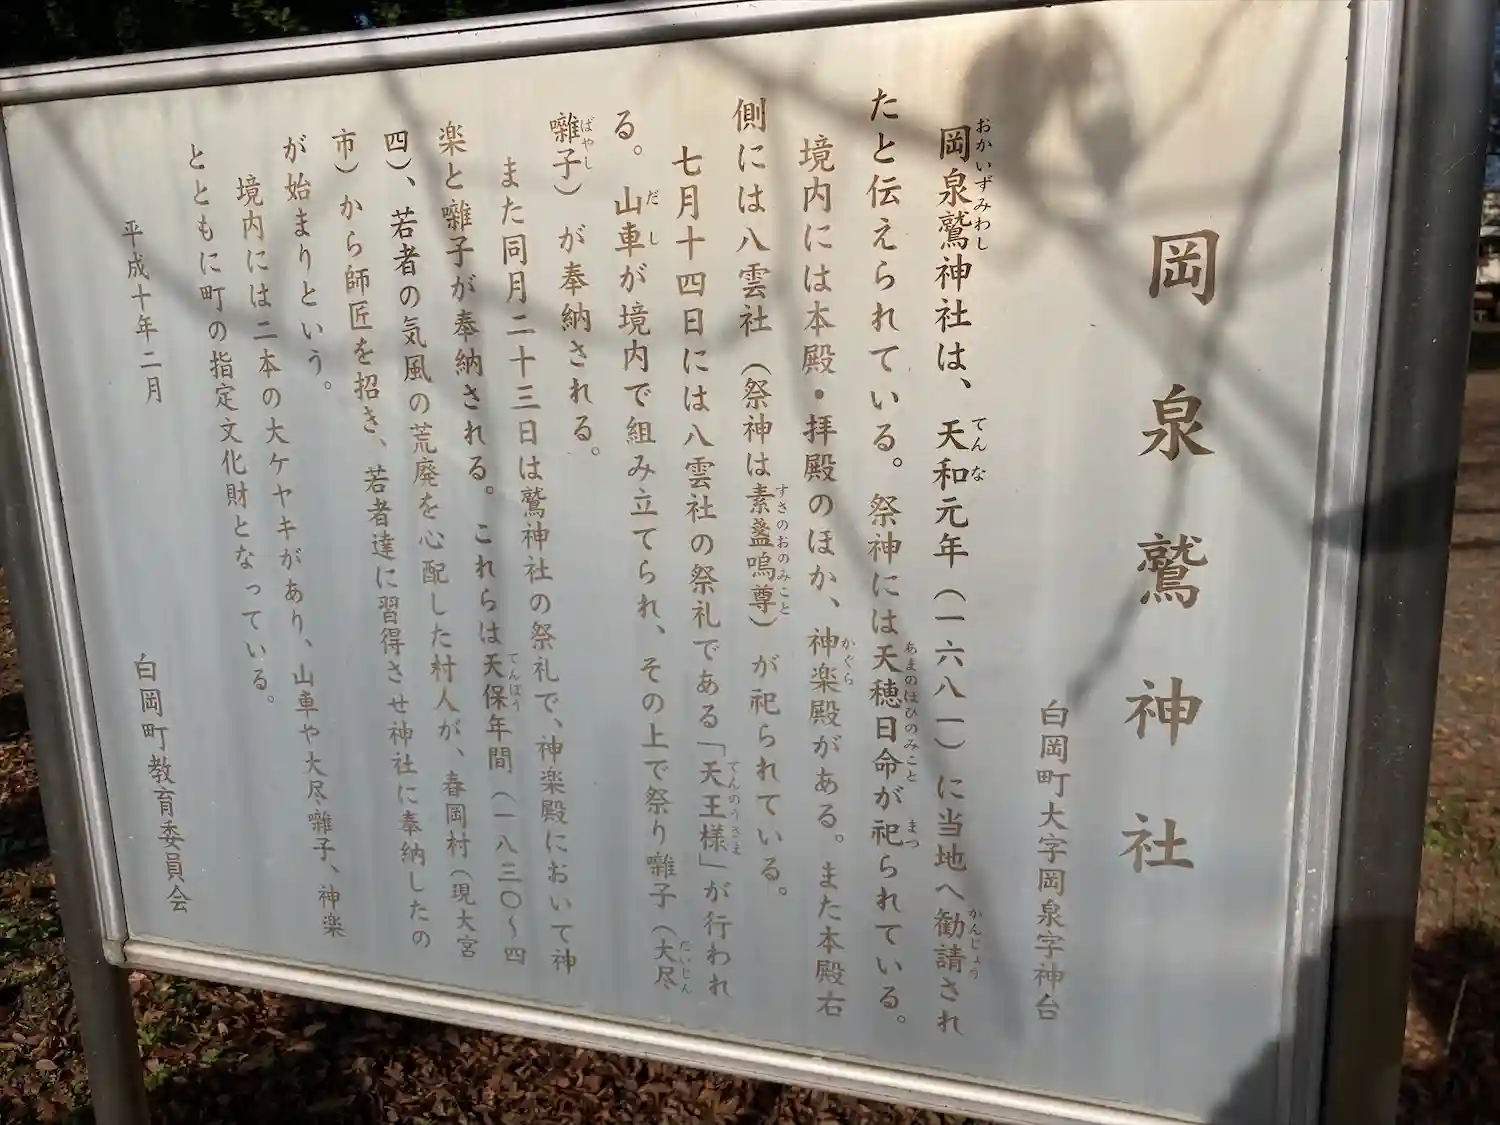 岡泉鷲神社
白岡町大字岡泉字神台
岡泉鷲神社は、天和元年(一六八一)に当地へ勧請され
おかいずみわし
てんな
かんじょう
たと伝えられている。祭神には天穂日命が祀られている。
あまのほひのみこと
まつ
境内には本殿・拝殿のほか、神楽殿がある。また本殿右
かぐら
側には八雲社(祭神は素盞嗚尊)が祀られている。
すさのおのみこと
七月十四日には八雲社の祭礼である「天王様」が行われ
てんのうさま
る。山車が境内で組み立てられ、その上で祭り囃子(大尽
だし
たいじん
囃子)が奉納される。
ばやし
また同月二十三日は鷲神社の祭礼で、神楽殿において神
楽と囃子が奉納される。これらは天保年間(一八三〇~四
てんぽう
四)、若者の気風の荒廃を心配した村人が、春岡村(現大宮
市)から師匠を招き、若者達に習得させ神社に奉納したの
が始まりという。
境内には二本の大ケヤキがあり、山車や大尽囃子、神楽
とともに町の指定文化財となっている。
平成十年二月
白岡町教育委員会